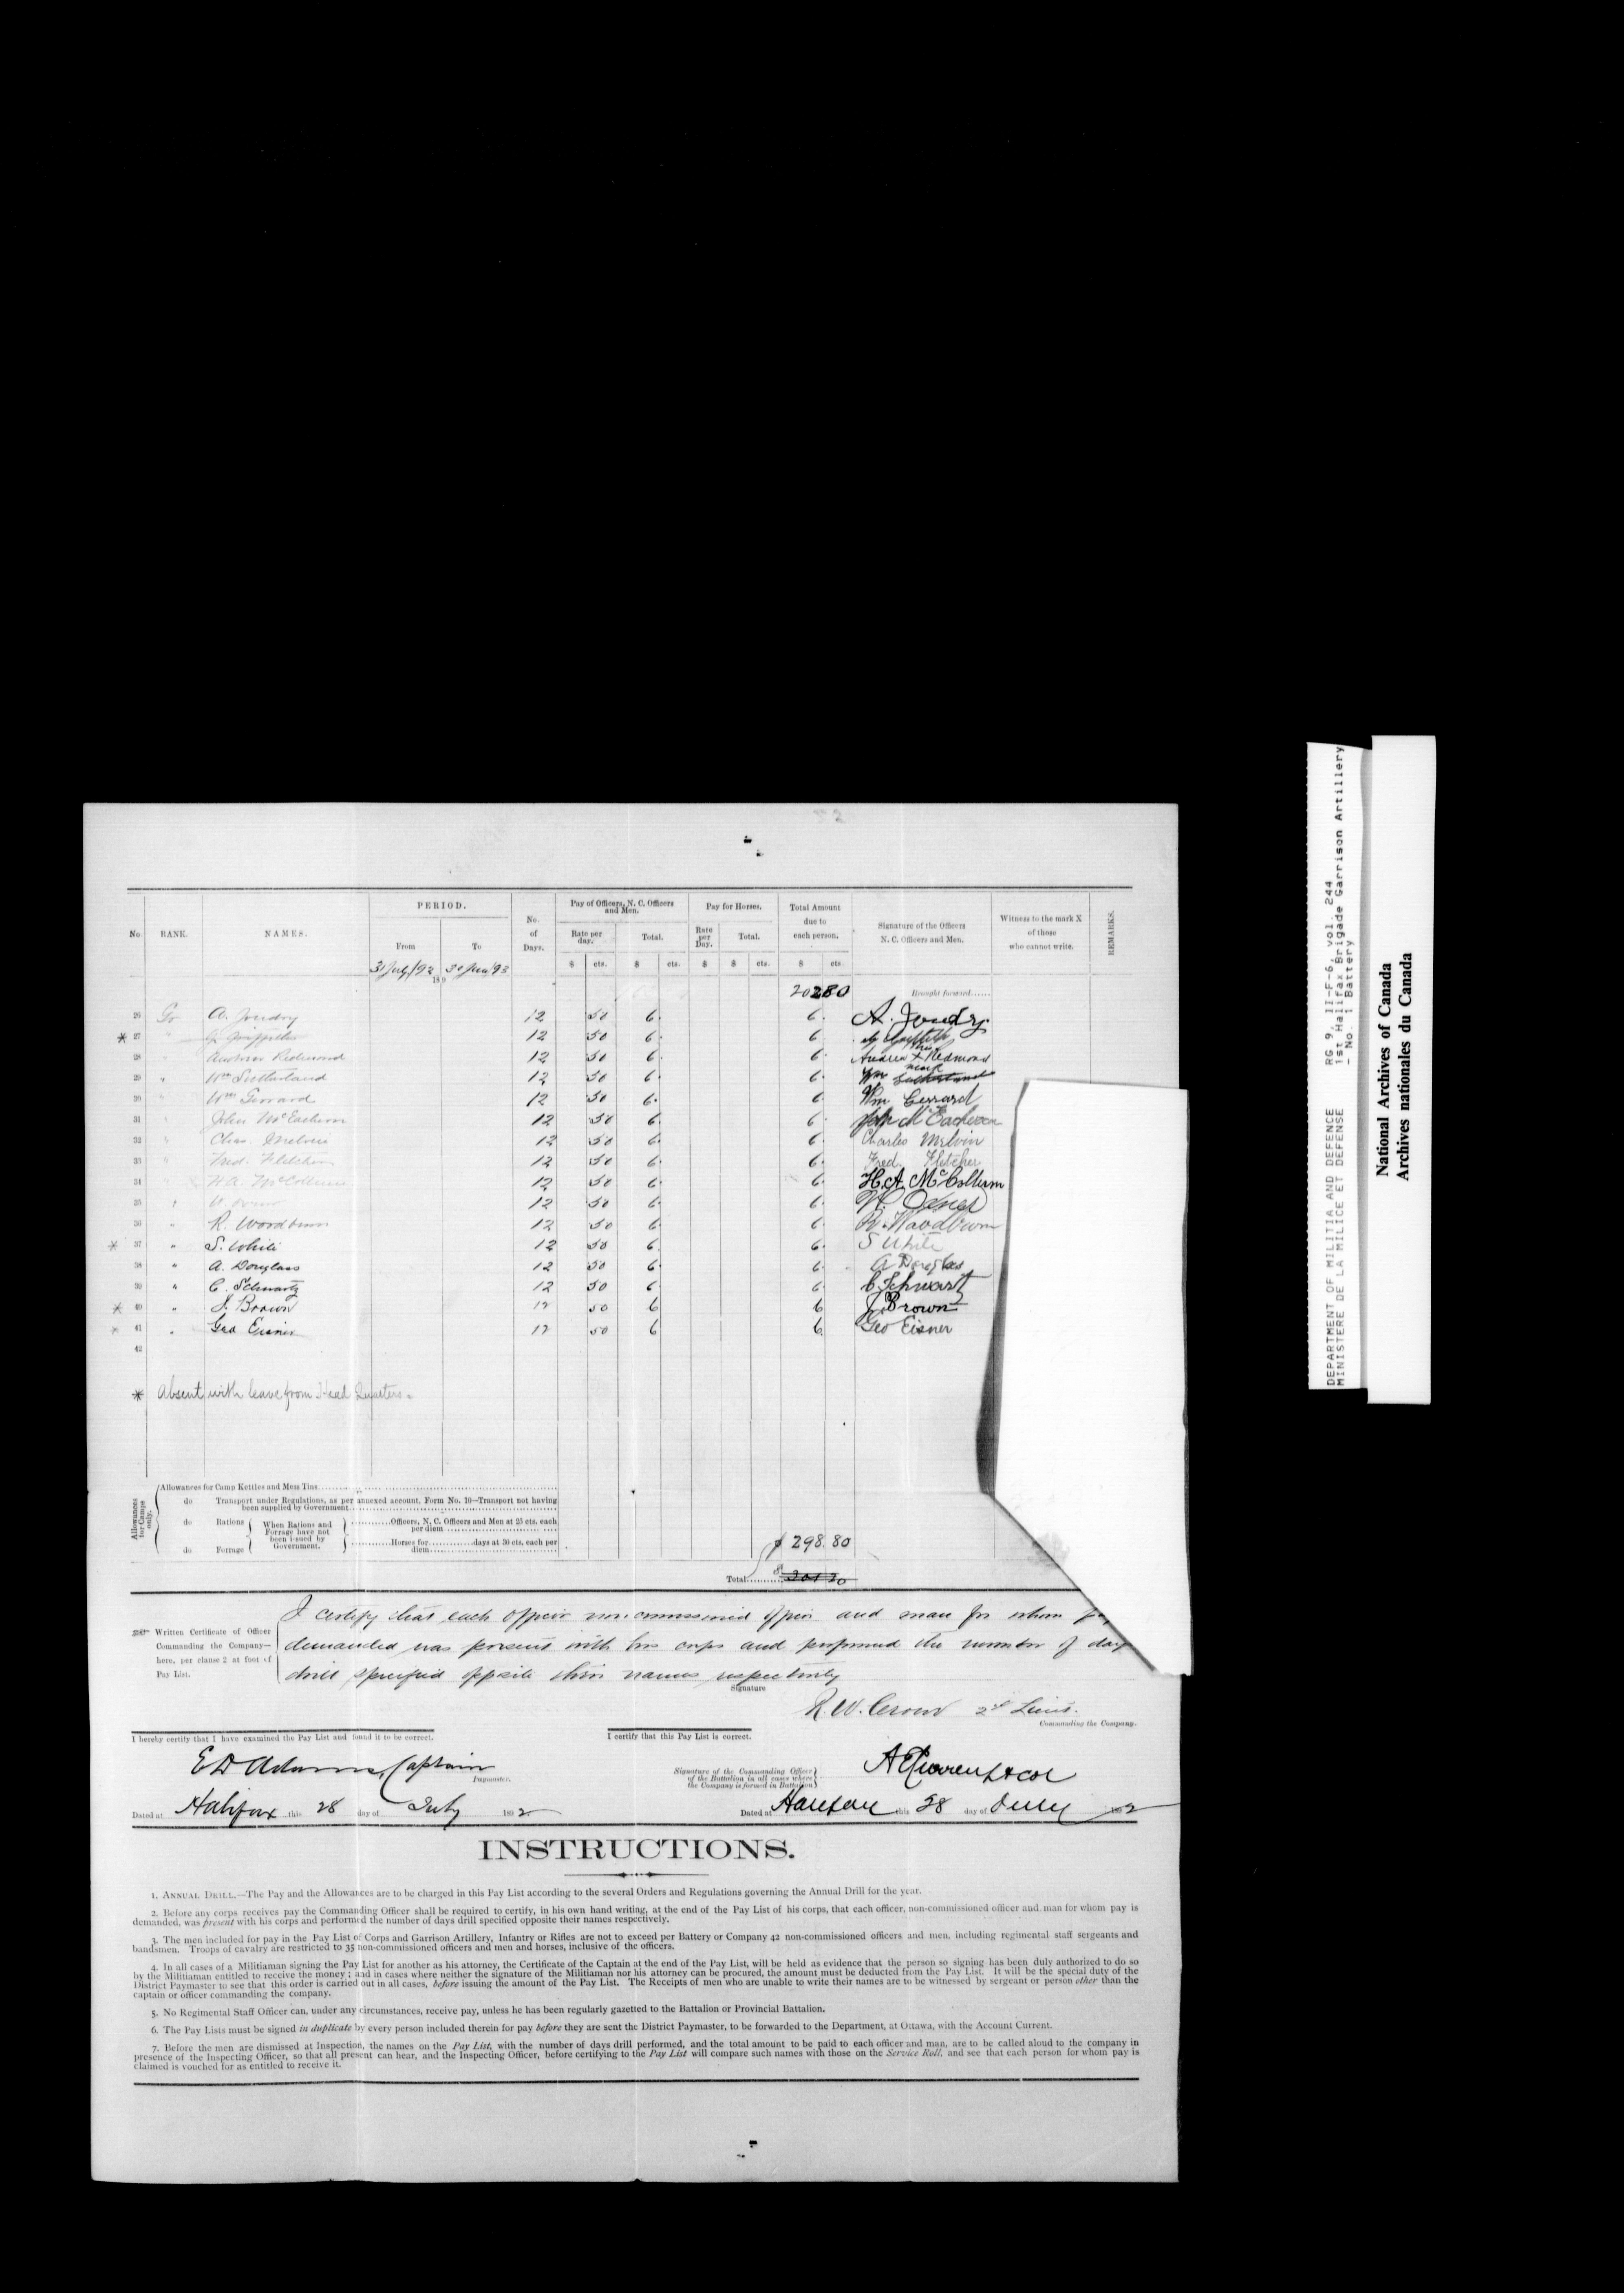 PERIOD.
Pay of Officers, N. C. Officers and Men.
Pay for Horses.
Total Amount due to each person.
Signature of the Officers N. C. Officers and Men.
Witness to the mark X of those who cannot write.
REMARKS.
No. RANK. NAMES. From To No. of Days. Rate per day. Total. Rate per Day. Total.
$ cts. $ cts. $ $ cts. $ cts.
31 July/92 30 June/93
189
20280 Brought forward......
26 Gr A. Joudry 12 50 6. 6. A. Joudry.
* 27 " 12 50 6. 6 Griffith
28 " Andrew Redmond 12 50 6. 6. Andrew X Redmond
his
mark
29 " Wm Sutherland 12 50 6. 6. Wm Sutherland
30 " Wm Gerrard 12 50 6. 6 Wm Gerrard
31 " John McEachern 12 50 6. 6. John McEachern
32 " Chas. Melvin 12 50 6. 6. Charles Melvin
33 " Fred. Fletcher 12 50 6. 6. Fred. Fletcher
34 " H.A. McCollum 12 50 6. 6. H.A. McCollum
35 " 12 50 6. 6.
36 " R. Woodburn 12 50 6. 6. R. Woodburn
* 37 " S. White 12 50 6. 6. S White
38 " A. Douglass 12 50 6. 6. A Douglas
39 " C. Schwartz 12 50 6 6. C. Schwartz
* 40 " J. Brown 12 50 6 6 J. Brown
* 41 " Geo Eisner 12 50 6 6. Geo Eisner
42
* Absent with leave from Head Quarters.
Allowances for Camps only.
Allowances for Camp Kettles and Mess Tins
do Transport under Regulations, as per annexed account, Form No. 10—Transport not having been supplied by Government
do Rations
When Rations and Forrage have not been issued by Government.
Officers, N. C. Officers and Men at 25 cts. each per diem
do Forrage
Horses for............days at 30 cts. each per diem
$ 298.80
Total.......... $ 301 20
Written Certificate of Officer Commanding the Company—here, per clause 2 at foot of Pay List.
I certify that each officer non commissioned officer and man for whom pay
demanded was present with his corps and performed the number of days
drill specified opposite their names respectively
Signature
R. W. 2nd Lieut.
Commanding the Company.
I hereby certify that I have examined the Pay List and found it to be correct.
I certify that this Pay List is correct.
E D Adams, Captain
Paymaster.
Signature of the Commanding Officer of the Battalion in all cases where the Company is formed in Battalion
A E Curren Lt Col
Dated at Halifax this 28 day of July 1892
Dated at Halifax this 28 day of July 1892
INSTRUCTIONS.
1. ANNUAL DRILL.—The Pay and the Allowances are to be charged in this Pay List according to the several Orders and Regulations governing the Annual Drill for the year.
2. Before any corps receives pay the Commanding Officer shall be required to certify, in his own hand writing, at the end of the Pay List of his corps, that each officer, non-commissioned officer and man for whom pay is
demanded, was present with his corps and performed the number of days drill specified opposite their names respectively.
3. The men included for pay in the Pay List of Corps and Garrison Artillery, Infantry or Rifles are not to exceed per Battery or Company 42 non-commissioned officers and men, including regimental staff sergeants and
bandsmen. Troops of cavalry are restricted to 35 non-commissioned officers and men and horses, inclusive of the officers.
4. In all cases of a Militiaman signing the Pay List for another as his attorney, the Certificate of the Captain at the end of the Pay List, will be held as evidence that the person so signing has been duly authorized to do so
by the Militiaman entitled to receive the money; and in cases where neither the signature of the Militiaman nor his attorney can be procured, the amount must be deducted from the Pay List. It will be the special duty of the
District Paymaster to see that this order is carried out in all cases, before issuing the amount of the Pay List. The Receipts of men who are unable to write their names are to be witnessed by sergeant or person other than the
captain or officer commanding the company.
5. No Regimental Staff Officer can, under any circumstances, receive pay, unless he has been regularly gazetted to the Battalion or Provincial Battalion.
6. The Pay Lists must be signed in duplicate by every person included therein for pay before they are sent the District Paymaster, to be forwarded to the Department, at Ottawa, with the Account Current.
7. Before the men are dismissed at Inspection, the names on the Pay List, with the number of days drill performed, and the total amount to be paid to each officer and man, are to be called aloud to the company in
presence of the Inspecting Officer, so that all present can hear, and the Inspecting Officer, before certifying to the Pay List will compare such names with those on the Service Roll, and see that each person for whom pay is
claimed is vouched for as entitled to receive it.
DEPARTMENT OF MILITIA AND DEFENCE RG 9, II-F-6, vol. 244
MINISTERE DE LA MILICE ET DEFENSE 1st Halifax Brigade Garrison Artillery
- No. 1 Battery
National Archives of Canada
Archives nationales du Canada